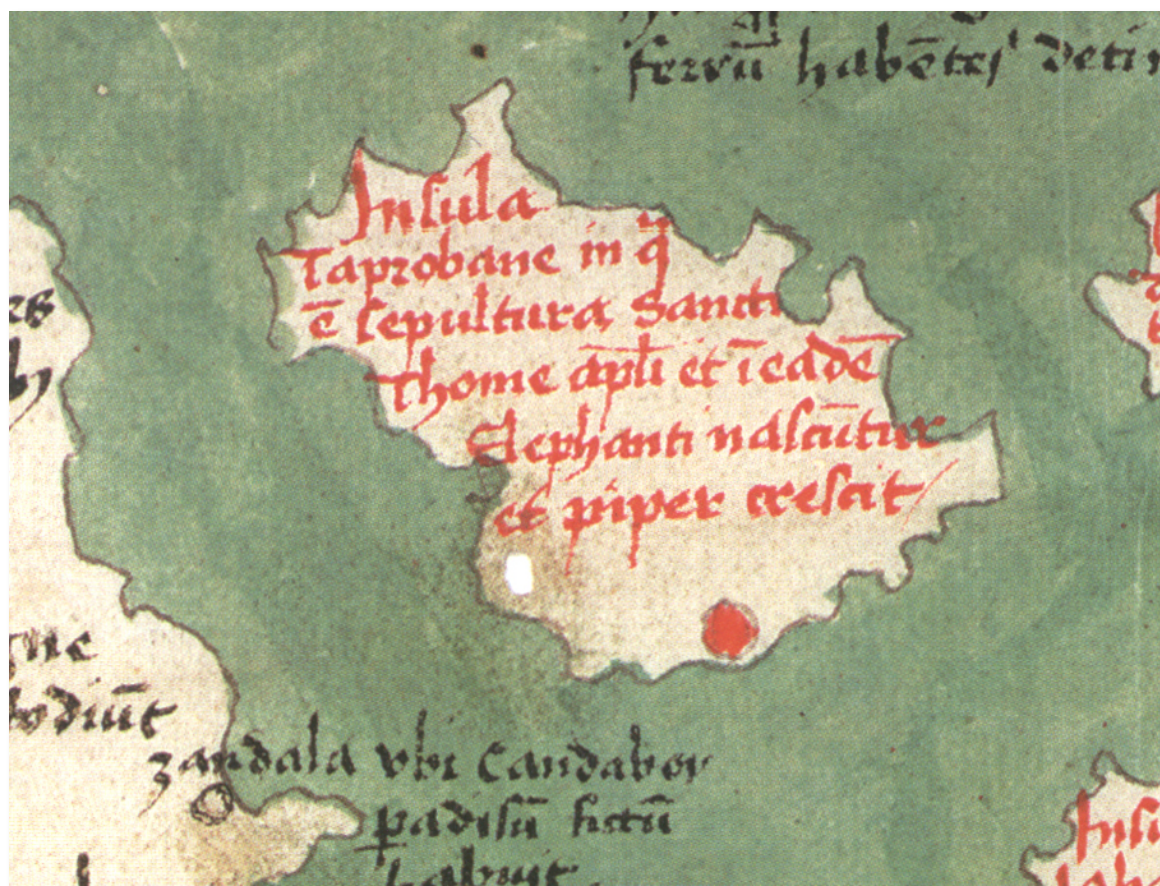 ferrū habētes deti
Insula
Taprobane in q̄
ē sepultura Sancti
Thome ap̄li et ī eadē
Elephanti nascūtur
et piper crescit
diūt
zandala vbi Candabor
ꝑadisū fictū
habuit
Insu